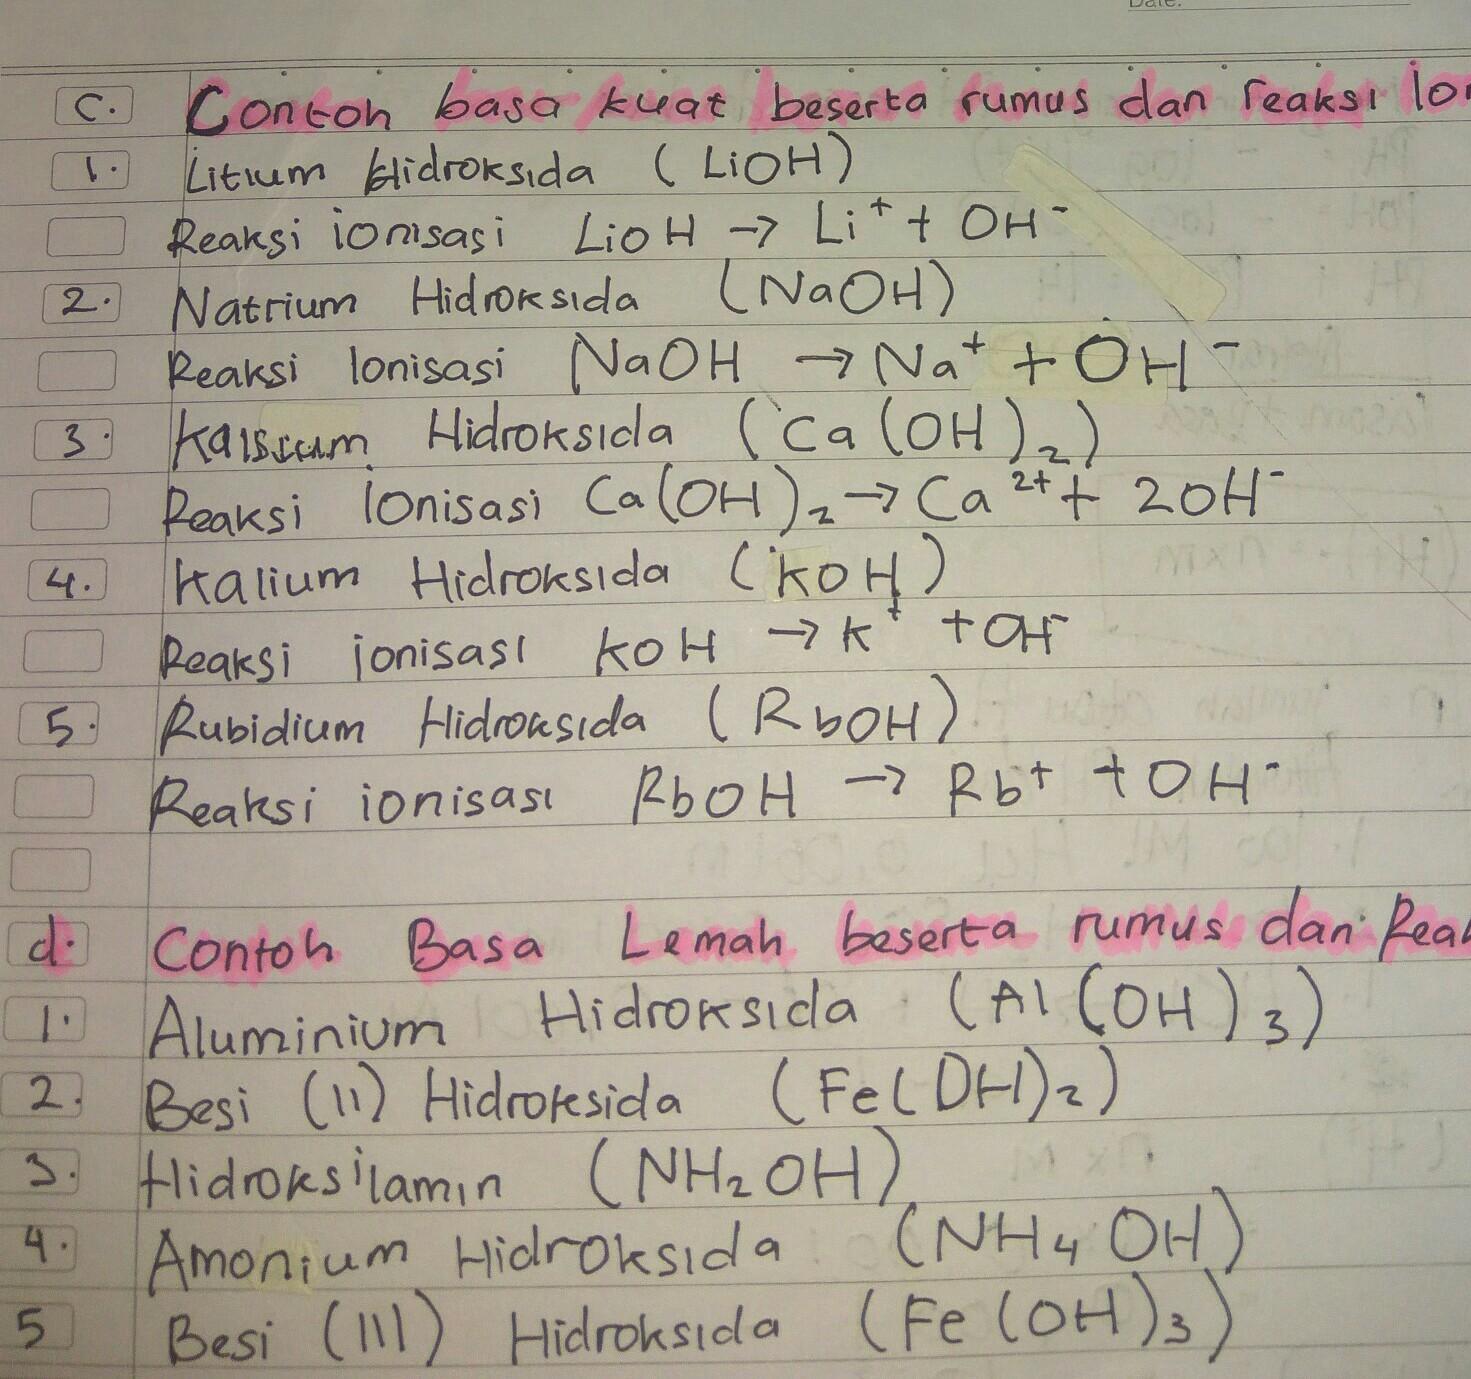 Date:
C. Contoh basa kuat beserta rumus dan reaksi Ion
1. Litium Hidroksida (LiOH)
Reaksi ionisasi LiOH → Li⁺ + OH⁻
2. Natrium Hidroksida (NaOH)
Reaksi Ionisasi NaOH → Na⁺ + OH⁻
3. Kalsium Hidroksida (Ca(OH)₂)
Reaksi Ionisasi Ca(OH)₂ → Ca²⁺ + 2OH⁻
4. Kalium Hidroksida (KOH)
Reaksi ionisasi KOH → K⁺ + OH⁻
5. Rubidium Hidroksida (RbOH)
Reaksi ionisasi RbOH → Rb⁺ + OH⁻
d. Contoh Basa Lemah beserta rumus dan Reak
1. Aluminium Hidroksida (Al(OH)₃)
2. Besi (II) Hidroksida (Fe(OH)₂)
3. Hidroksilamin (NH₂OH)
4. Amonium Hidroksida (NH₄OH)
5 Besi (III) Hidroksida (Fe(OH)₃)